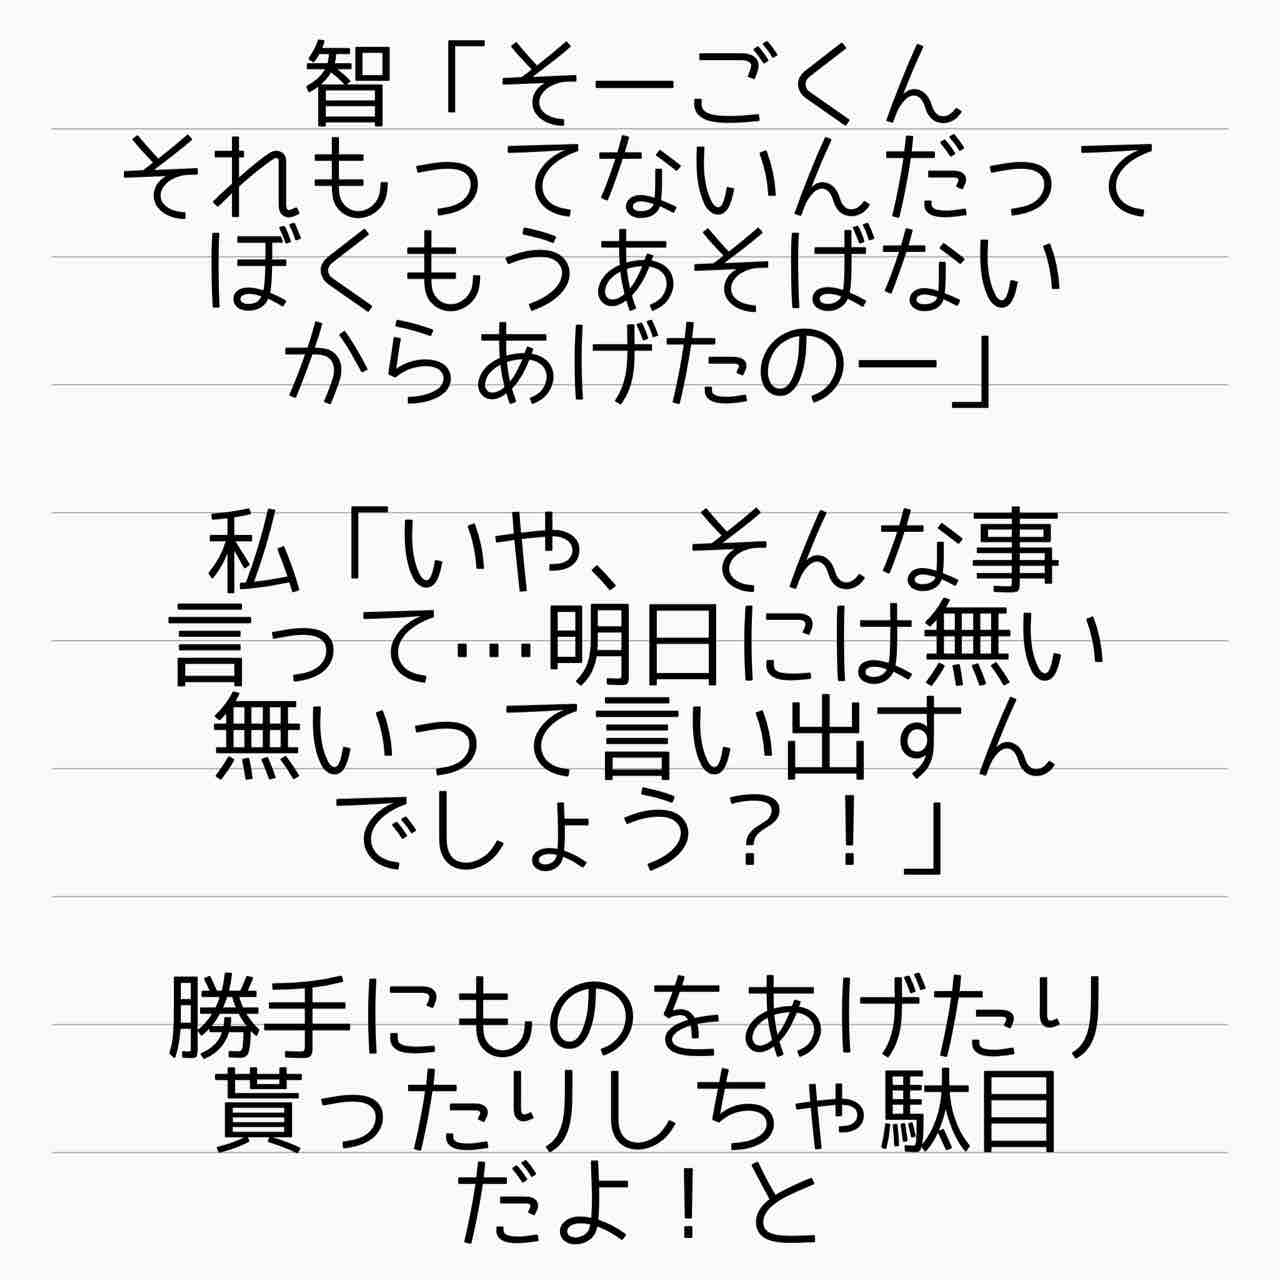 智「そーごくん
それもってないんだって
ぼくもうあそばない
からあげたのー」
私「いや、そんな事
言って…明日には無い
無いって言い出すん
でしょう？！」
勝手にものをあげたり
貰ったりしちゃ駄目
だよ！と